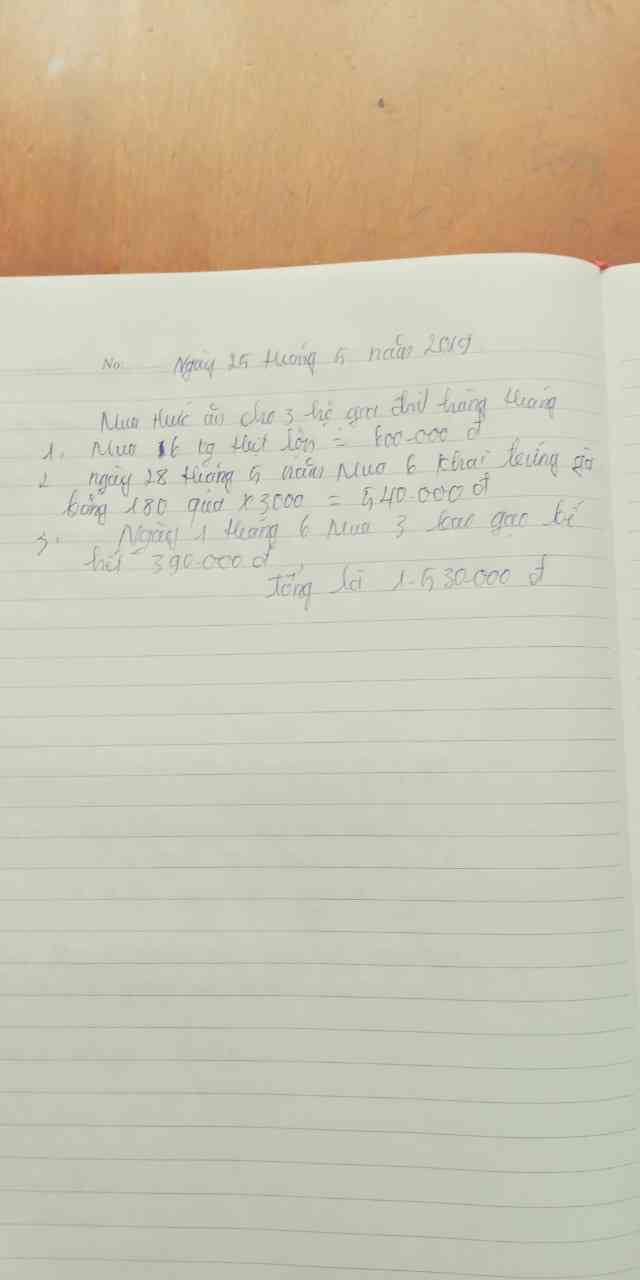 No.
Ngày 25 tháng 5 năm 2019
Mua thức ăn cho 3 hộ gia đình hàng tháng
1. Mua 6 kg thịt lợn = 600.000 đ
2 ngày 28 tháng 5 năm Mua 6 khai trứng gà
bằng 180 quả x 3000 = 540.000 đ
3. Ngày 1 tháng 6 Mua 3 bao gạo bé
hết 390.000 đ
Tổng là 1.530.000 đ